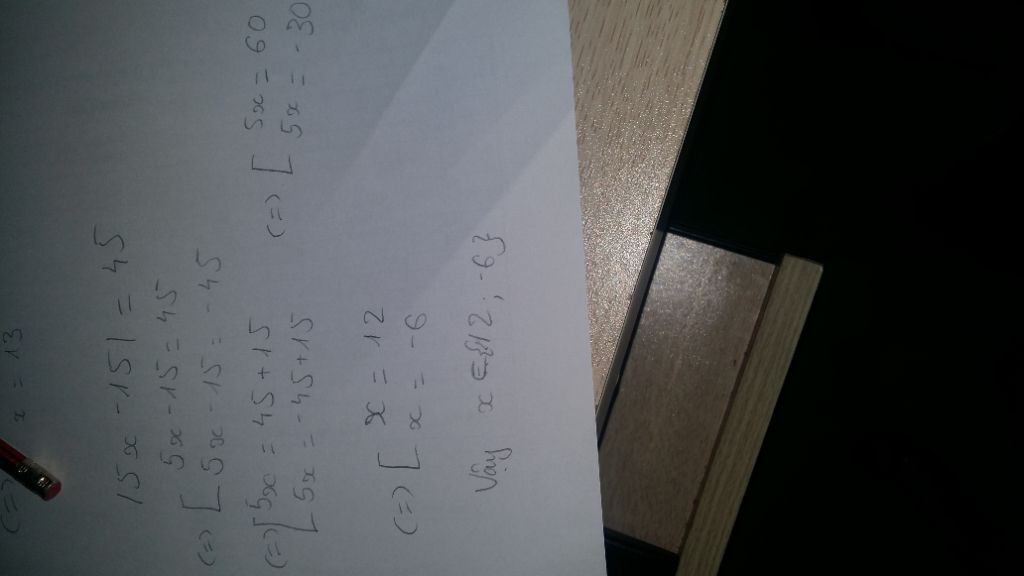 (=) x = 13
|5x - 15| = 45
(=) [ 5x - 15 = 45
5x - 15 = - 45
(=) [ 5x = 45 + 15 (=) [ 5x = 60
5x = - 45 + 15 5x = - 30
(=) [ x = 12
x = - 6
Vậy x ∈ {12 ; -6}